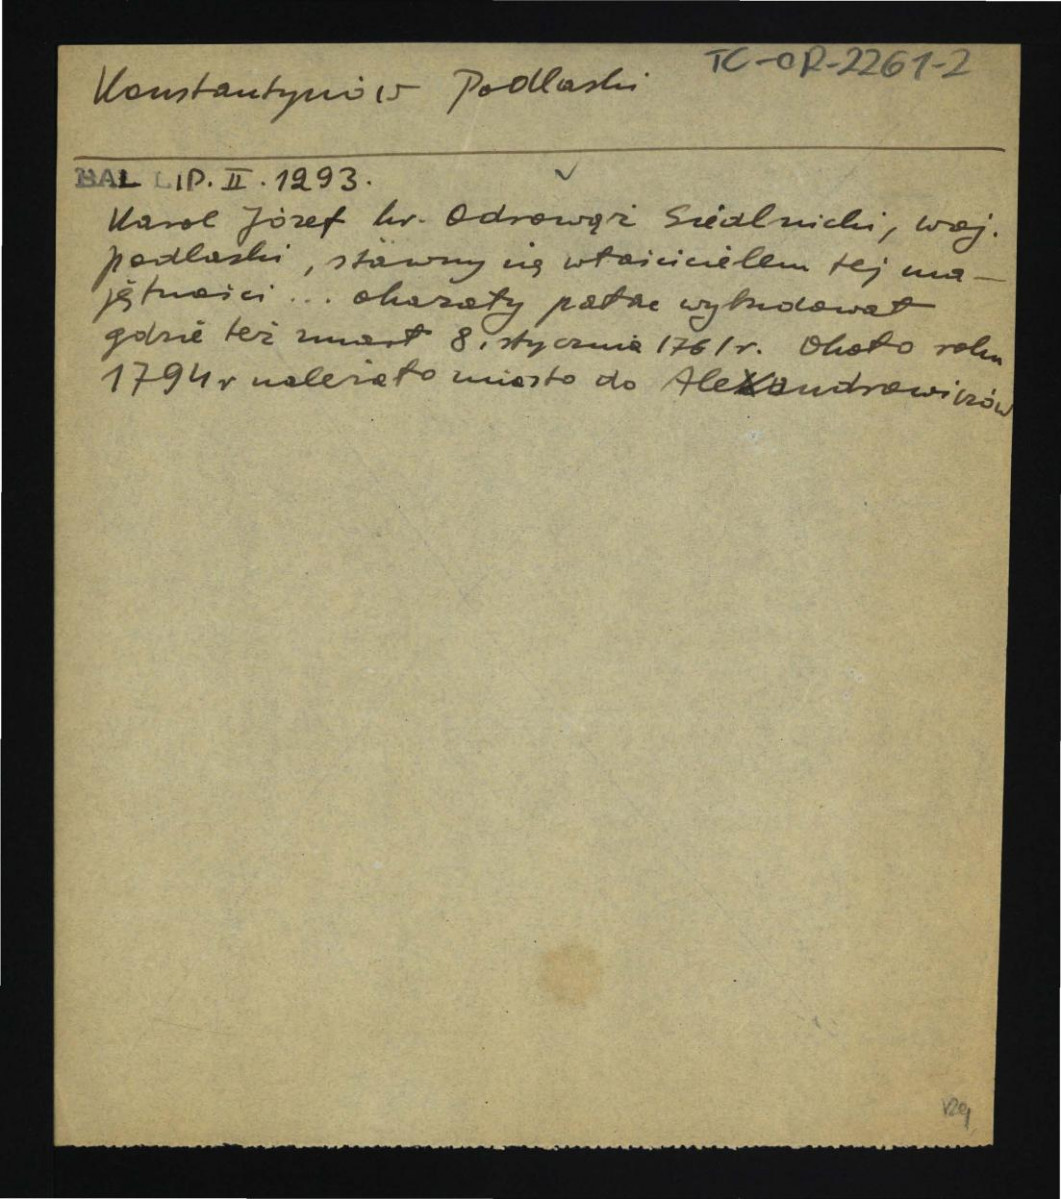 TC-OR-2261-2
Konstantynów Podlaski
BAL LIP. II. 1293.
Karol Józef hr. Odrowąż Siedlnicki, woj.
podlaski, stawszy się właścicielem tej ma-
jętności ... okazały pałac wybudował
gdzie też zmarł 8. stycznia 1761 r. Około roku
1794 r należało miasto do Alexandrowiczów